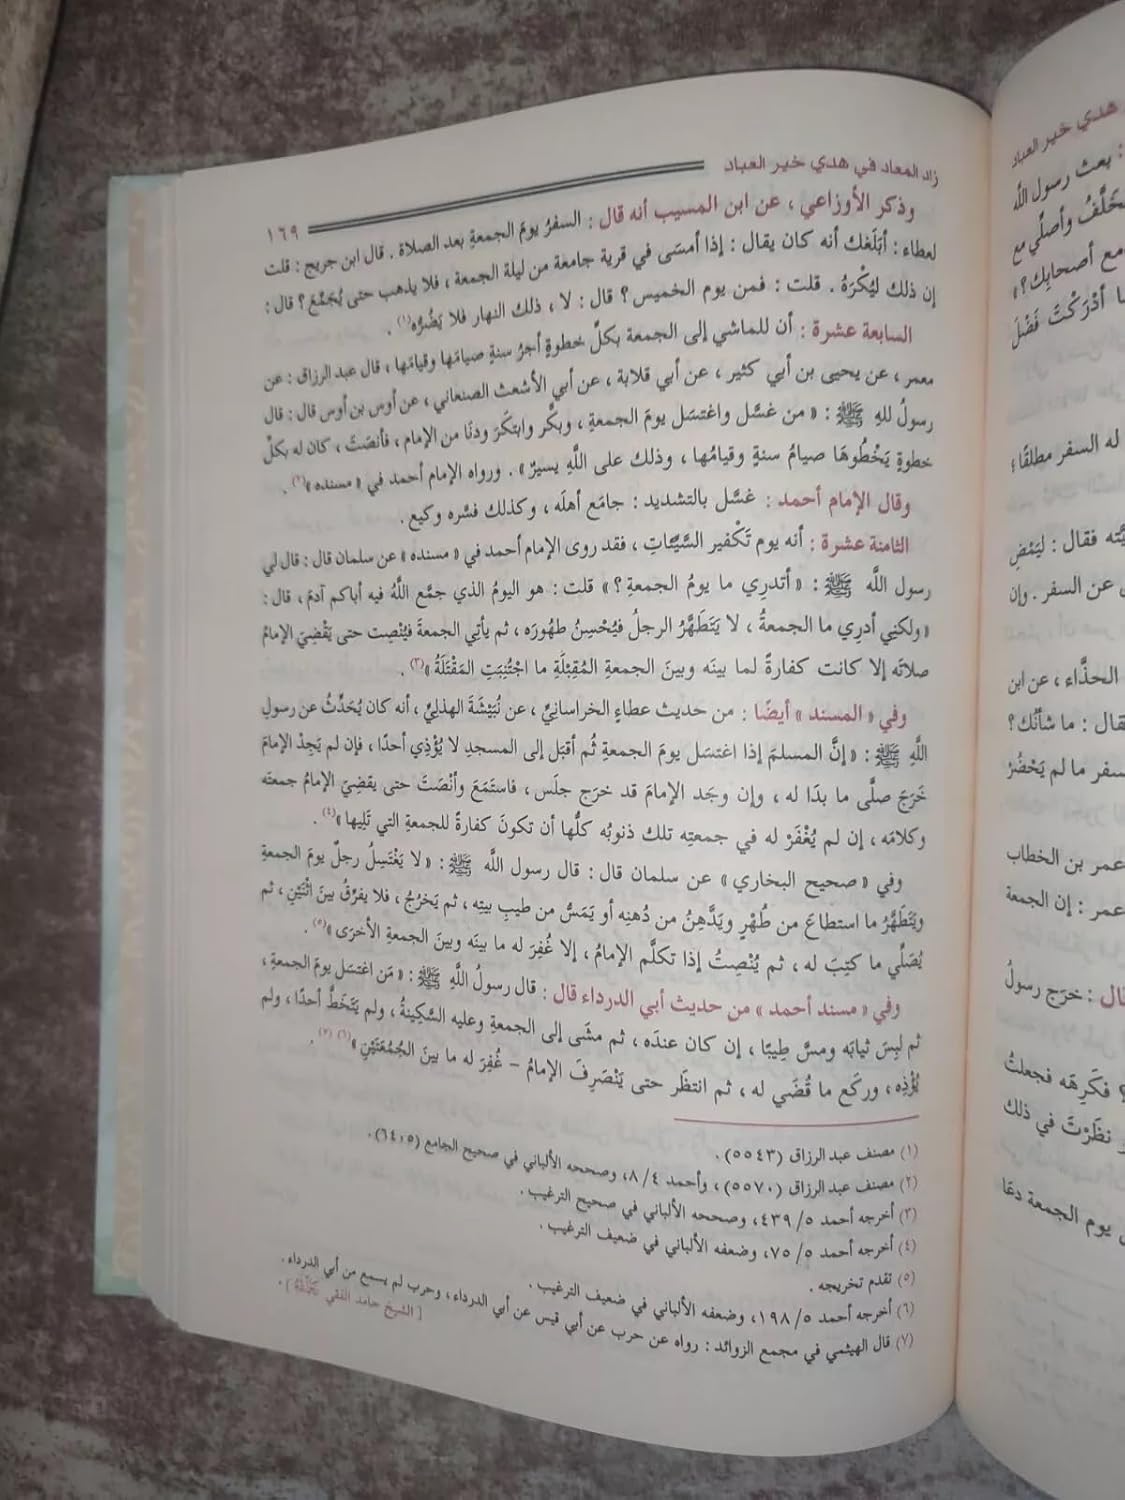 زاد المعاد في هدي خير العباد ١٦٩
وذكر الأوزاعي ، عن ابن المسيب أنه قال : السفرُ يومَ الجمعةِ بعد الصلاة . قال ابن جريج : قلت
لعطاء : أبَلَغك أنه كان يقال : إذا أمسَى في قرية جامعة من ليلة الجمعة ، فلا يذهب حتى يُجَمِّعَ ؟ قال :
إن ذلك ليُكْرَهُ . قلت : فمن يوم الخميس ؟ قال : لا ، ذلك النهار فلا يَضُرُّه(١) .
السابعة عشرة : أن للماشي إلى الجمعة بكلِّ خطوةٍ أجرُ سنةٍ صيامَها وقيامَها ، قال عبد الرزاق : عن
معمر ، عن يحيى بن أبي كثير ، عن أبي قلابة ، عن أبي الأشعث الصنعاني ، عن أوس بن أوس قال : قال
رسولُ للهِ ﷺ : « من غسَّل واغتسَل يومَ الجمعةِ ، وبكَّر وابتكَرَ ودنَا من الإمام ، فأنصَتَ ، كان له بكلِّ
خطوةٍ يَخْطُوهَا صيامُ سنةٍ وقيامُها ، وذلك على اللَّهِ يسيرٌ » . ورواه الإمام أحمد في « مسنده »(٢) .
وقال الإمام أحمد : غسَّل بالتشديد : جامَع أهلَه ، وكذلك فسَّره وكيع .
الثامنة عشرة : أنه يوم تَكْفير السَّيِّئاتِ ، فقد روى الإمام أحمد في « مسنده » عن سلمان قال : قال لي
رسول اللَّه ﷺ : « أتدرِي ما يومُ الجمعةِ ؟ » قلت : هو اليومُ الذي جمَّع اللَّهُ فيه أباكم آدمَ ، قال :
« ولكنِي أدرِي ما الجمعةُ ، لا يَتَطَهَّرُ الرجلُ فيُحْسِنُ طهُورَه ، ثم يأتِي الجمعةَ فيُنْصِت حتى يَقْضِيَ الإمامُ
صلاتَه إلا كانت كفارةً لما بينَه وبينَ الجمعةِ المُقِبْلَةِ ما اجْتُنِبَتِ المَقْتَلَةُ »(٣) .
وفي « المسند » أيضًا : من حديث عطاءٍ الخراسانِيِّ ، عن نُبَيْشَةَ الهذلِيِّ ، أنه كان يُحَدِّثُ عن رسولِ
اللَّهِ ﷺ : « إنَّ المسلمَ إذا اغتسَل يومَ الجمعةِ ثُم أقبَل إلى المسجدِ لا يُؤْذِي أحدًا ، فإن لم يَجِدْ الإمامَ
خَرَجَ صلَّى ما بدَا له ، وإن وجَد الإمامَ قد خرَج جلَس ، فاستَمَعَ وأنْصَتَ حتى يقضِيَ الإمامُ جمعتَه
وكلامَه ، إن لم يُغْفَرْ له في جمعتِه تلك ذنوبُه كلُّها أن تكونَ كفارةً للجمعةِ التي تَلِيها »(٤) .
وفي « صحيح البخاري » عن سلمان قال : قال رسول اللَّه ﷺ : « لا يَغْتَسِلُ رجلٌ يومَ الجمعةِ
ويَتَطَهَّرُ ما استطاعَ من طُهْرٍ ويَدَّهِنُ من دُهنِه أو يَمَسُّ من طيبِ بيتِه ، ثم يَخرُجُ ، فلا يفرِّقُ بينَ اثْنَيْنِ ، ثم
يُصَلِّي ما كتِبَ له ، ثم يُنْصِتُ إذا تكلَّم الإمامُ ، إلا غُفِرَ له ما بينَه وبينَ الجمعةِ الأخرَى »(٥) .
وفي « مسند أحمد » من حديث أبي الدرداء قال : قال رسولُ اللَّهِ ﷺ : « مَن اغتسَل يومَ الجمعةِ ،
ثم لبِسَ ثيابَه ومسَّ طِيبًا ، إن كان عندَه ، ثم مشَى إلى الجمعةِ وعليه السَّكِينةُ ، ولم يَتَخَطَّ أحدًا ، ولم
يُؤْذِه ، وركَع ما قُضَي له ، ثم انتظَر حتى يَنْصَرِفَ الإمامُ – غُفِرَ له ما بينَ الجُمُعَتَيْنِ »(٦) (٧) .
(١) مصنف عبد الرزاق (٥٥٤٣) .
(٢) مصنف عبد الرزاق (٥٥٧٠) ، وأحمد ٤ /٨، وصححه الألباني في صحيح الجامع (٦٤٠٥) .
(٣) أخرجه أحمد ٥ /٤٣٩، وصححه الألباني في صحيح الترغيب .
(٤) أخرجه أحمد ٥ /٧٥، وضعفه الألباني في ضعيف الترغيب .
(٥) تقدم تخريجه .
(٦) أخرجه أحمد ٥ /١٩٨، وضعفه الألباني في ضعيف الترغيب .
(٧) قال الهيثمي في مجمع الزوائد : رواه عن حرب عن أبي قيس عن أبي الدرداء ، وحرب لم يسمع من أبي الدرداء .
[ الشيخ حامد الفقي ] .
هدي خير العباد
: بعث رسول الله
تخَلَّفُ وأصلِّي مع
مع أصحابِك ؟ »
ما أدْرَكْتَ فَضْلَ
له السفر مطلقًا ؛
فقال : ليَمْضِ
عن السفر . وإن
الحذَّاء ، عن ابن
قال : ما شأنُك ؟
سفر ما لم يَحْضُرْ
عمر بن الخطاب
عمر : إن الجمعة
قال : خرَج رسولُ
؟ فكَرِهَه فجعلتُ
نظَرْتَ في ذلك
يوم الجمعة دعَا